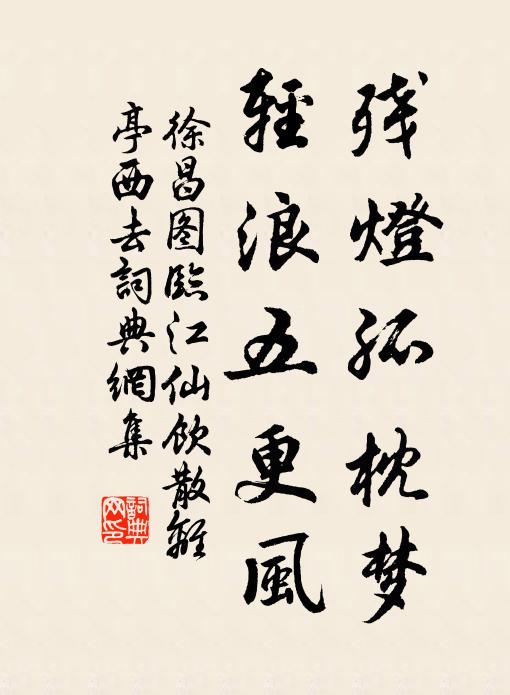 残燈孤枕梦
輕浪五更風
徐昌图臨江仙飲散離
亭西去詞典網集
詞典網印